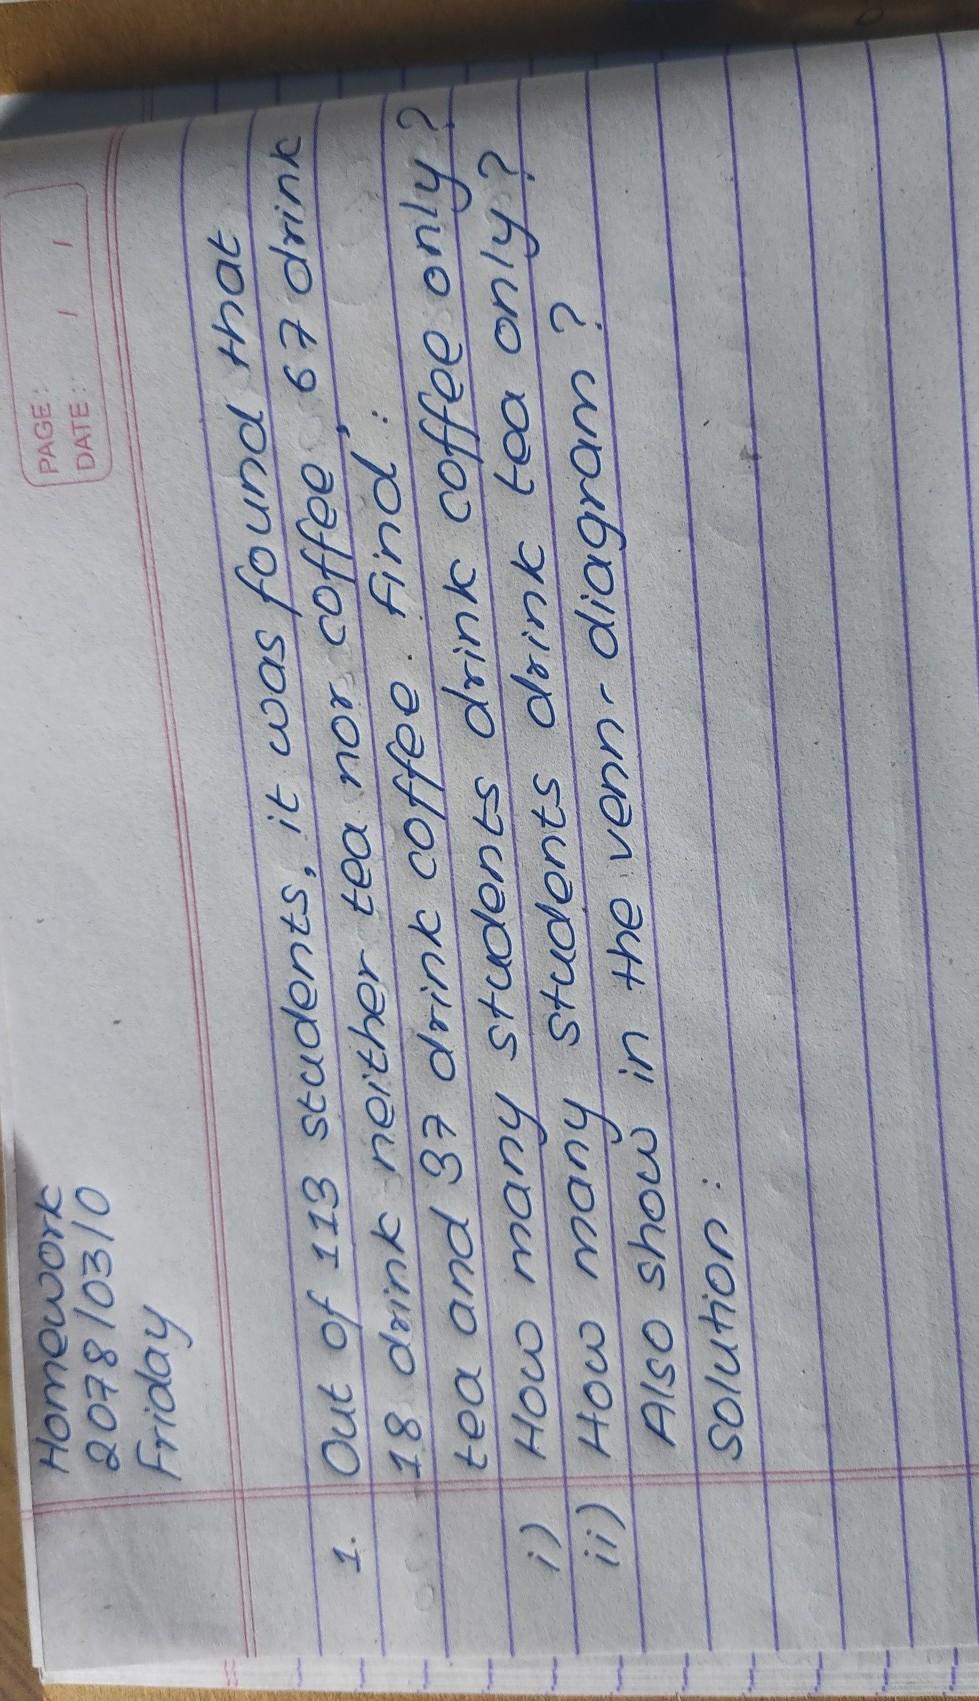 PAGE:
DATE: / /
Homework
2078/03/10
Friday
1. Out of 113 students, it was found that
18 drink neither tea nor coffee, 67 drink
tea and 37 drink coffee. find :
i) How many students drink coffee only?
ii) How many students drink tea only?
Also show in the venn-diagram?
solution :